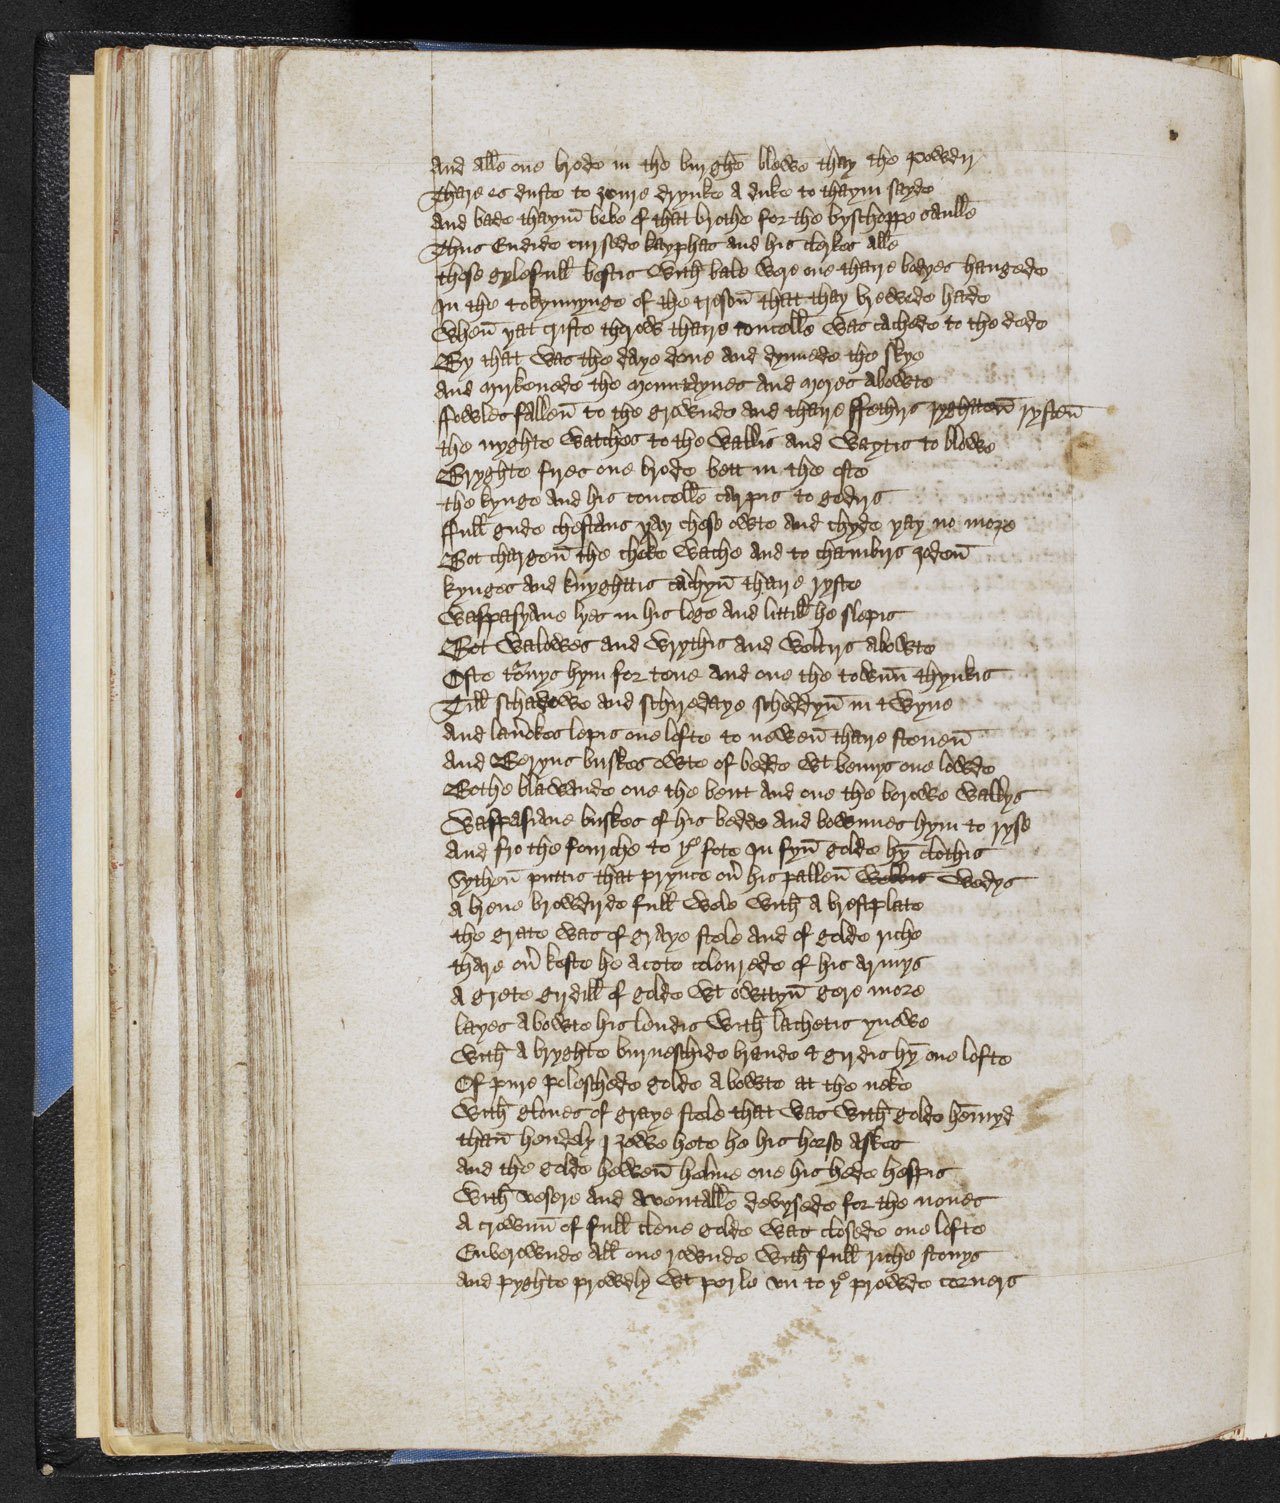 And alle one brode in the burghe blewe thay the powdir
Thare es duste to ȝoure drynke a duke to thaym sayde
And bade thaym bebe of that brothe for the byschoppe saulle
Thus Endide cursede kayphas and his clerkes alle
those gylefull bestis with bale were one thaire bodyes hangede
In the tokynnynge of the tresoun that thay brewede hade
When þat criste throwe thaire concelle was cachede to the dede
By that was the daye done and dymmede the skye
And myrkenede the mountaynes and mores abowte
ffowles fallen to the grownde and thaire ffethirs ryghtten rysten
the nyghte watches to the wallis and waytis to blowe
Bryghte fires one brode bett in the oste
the kynge and his concelle carpis to gedirs
ffull gude chestans þay chese owte and chyde þay no more
Bot chargen the cheke wache and to chambirs ȝeden
kynges and knyghttis cachyn thaire ryste
Waspasyane lyes in his loge and littill he slepis
Bot walowes and wrythis and weltirs abowte
Ofte tornys hym for tene and one the townn thynkis
Till schadowe and schiredaye scheddyn in twyne
And laverkes lepis one lofte to newen thaire steuen
And Beryns buskes owte of bedde wt bemys one lowde
Bothe blawande one the bent and one the borowe wallys
Waspasiane buskes of his bedde and bownnes hym to ryse
And fro the fourche to þe fote In fyn golde hym clothis
Sythen puttis that prynce ouer his pallen wedys
A brene browdirde full wele with a brestplate
the grate was of graye stele and of golde riche
thare ouer keste he a cote colourede of his armys
A grete girdill of golde wt owttyn gere more
layes abowte his lendis with lachetis ynewe
With a bryghte burneschide brande & girdis hym one lofte
Of pure poleschede golde abowte at the neke
With gloues of graye stele that was with golde hemmyd
than hendely I ȝowe hete he his horse askes
And the golde hewen helme one his hede hespis
With vesere and aventalle devysede for the nones
A crownn of full clene golde was closede one lofte
Enverownde all one rownde with full riche stonys
And pyghte prowdely wt perle vn to þe prowde corners